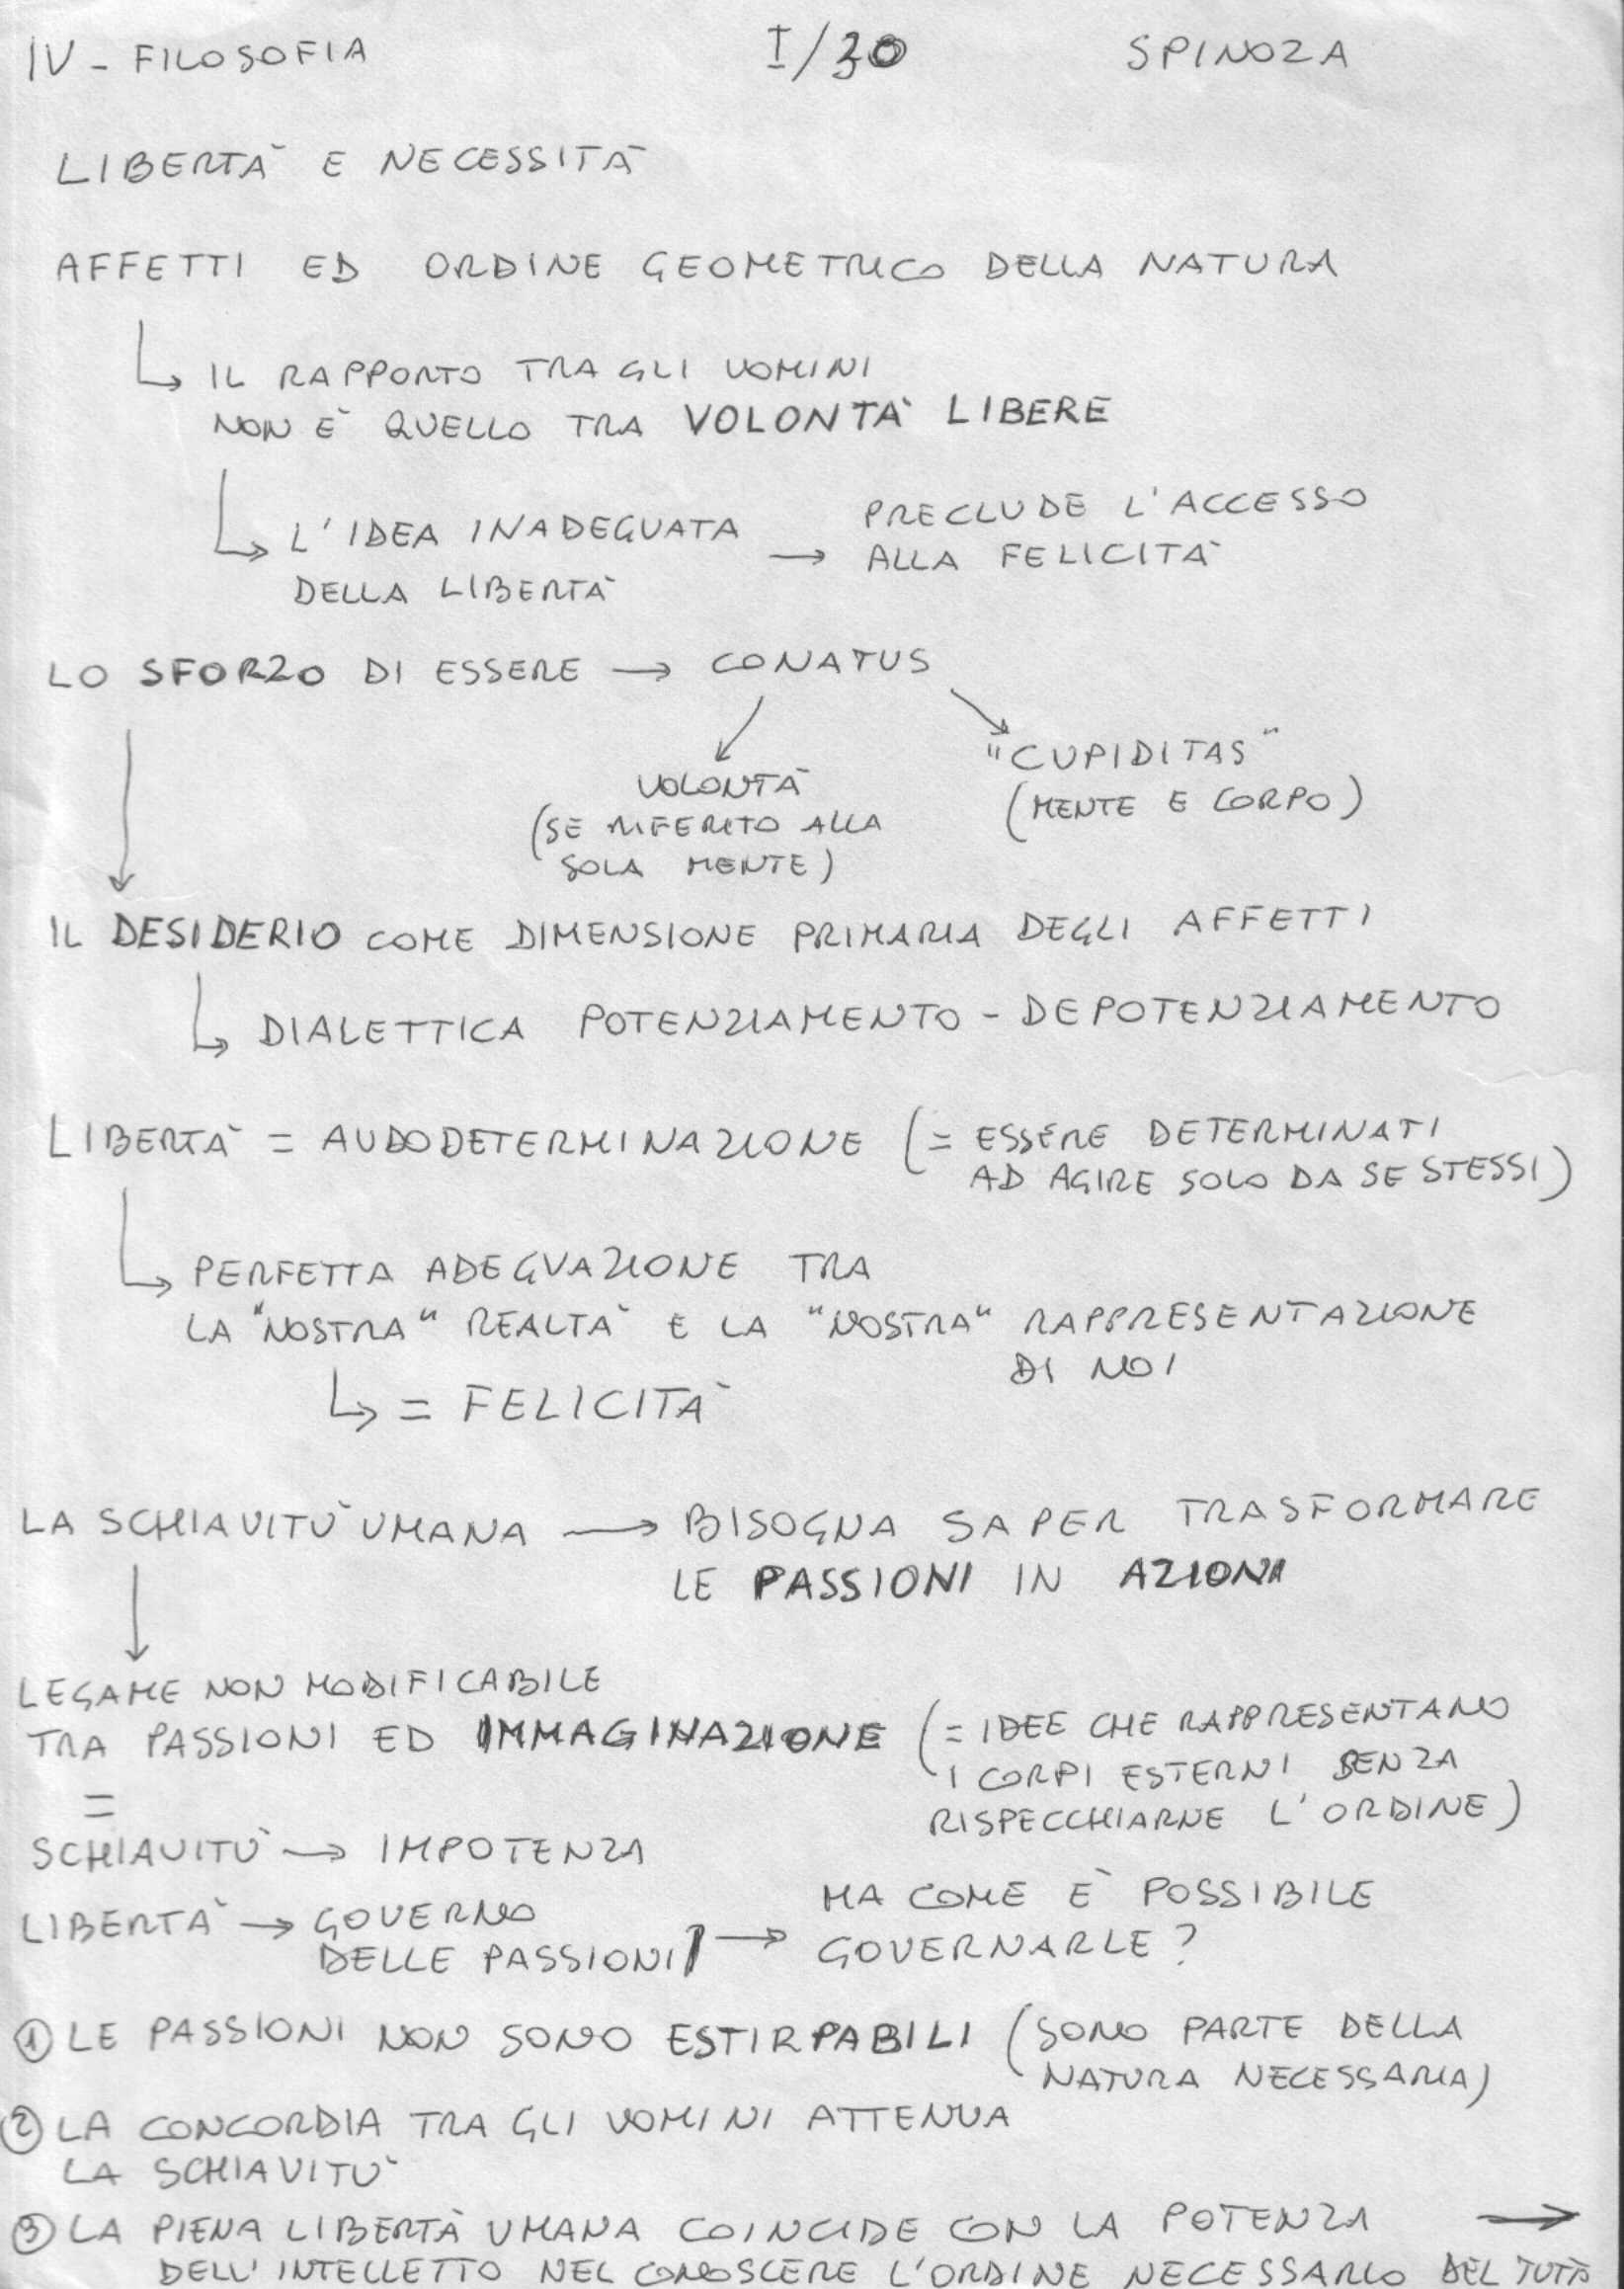 IV - FILOSOFIA I/30 SPINOZA
LIBERTÀ E NECESSITÀ
AFFETTI ED ORDINE GEOMETRICO DELLA NATURA
↳ IL RAPPORTO TRA GLI UOMINI
NON È QUELLO TRA VOLONTÀ LIBERE
↳ L'IDEA INADEGUATA
DELLA LIBERTÀ
→ PRECLUDE L'ACCESSO
ALLA FELICITÀ
LO SFORZO DI ESSERE → CONATUS
VOLONTÀ
(SE RIFERITO ALLA
SOLA MENTE)
"CUPIDITAS"
(MENTE E CORPO)
IL DESIDERIO COME DIMENSIONE PRIMARIA DEGLI AFFETTI
↳ DIALETTICA POTENZIAMENTO - DEPOTENZIAMENTO
LIBERTÀ = AUDODETERMINAZIONE (= ESSERE DETERMINATI
AD AGIRE SOLO DA SE STESSI)
↳ PERFETTA ADEGUAZIONE TRA
LA "NOSTRA" REALTÀ E LA "NOSTRA" RAPPRESENTAZIONE
DI NOI
↳ = FELICITÀ
LA SCHIAVITÙ UMANA → BISOGNA SAPER TRASFORMARE
LE PASSIONI IN AZIONI
LEGAME NON MODIFICABILE
TRA PASSIONI ED IMMAGINAZIONE (= IDEE CHE RAPPRESENTANO
I CORPI ESTERNI SENZA
RISPECCHIARNE L'ORDINE)
=
SCHIAVITÙ → IMPOTENZA
LIBERTÀ → GOVERNO
DELLE PASSIONI → MA COME È POSSIBILE
GOVERNARLE?
① LE PASSIONI NON SONO ESTIRPABILI (SONO PARTE DELLA
NATURA NECESSARIA)
② LA CONCORDIA TRA GLI UOMINI ATTENUA
LA SCHIAVITÙ
③ LA PIENA LIBERTÀ UMANA COINCIDE CON LA POTENZA →
DELL'INTELLETTO NEL CONOSCERE L'ORDINE NECESSARIO DEL TUTTO